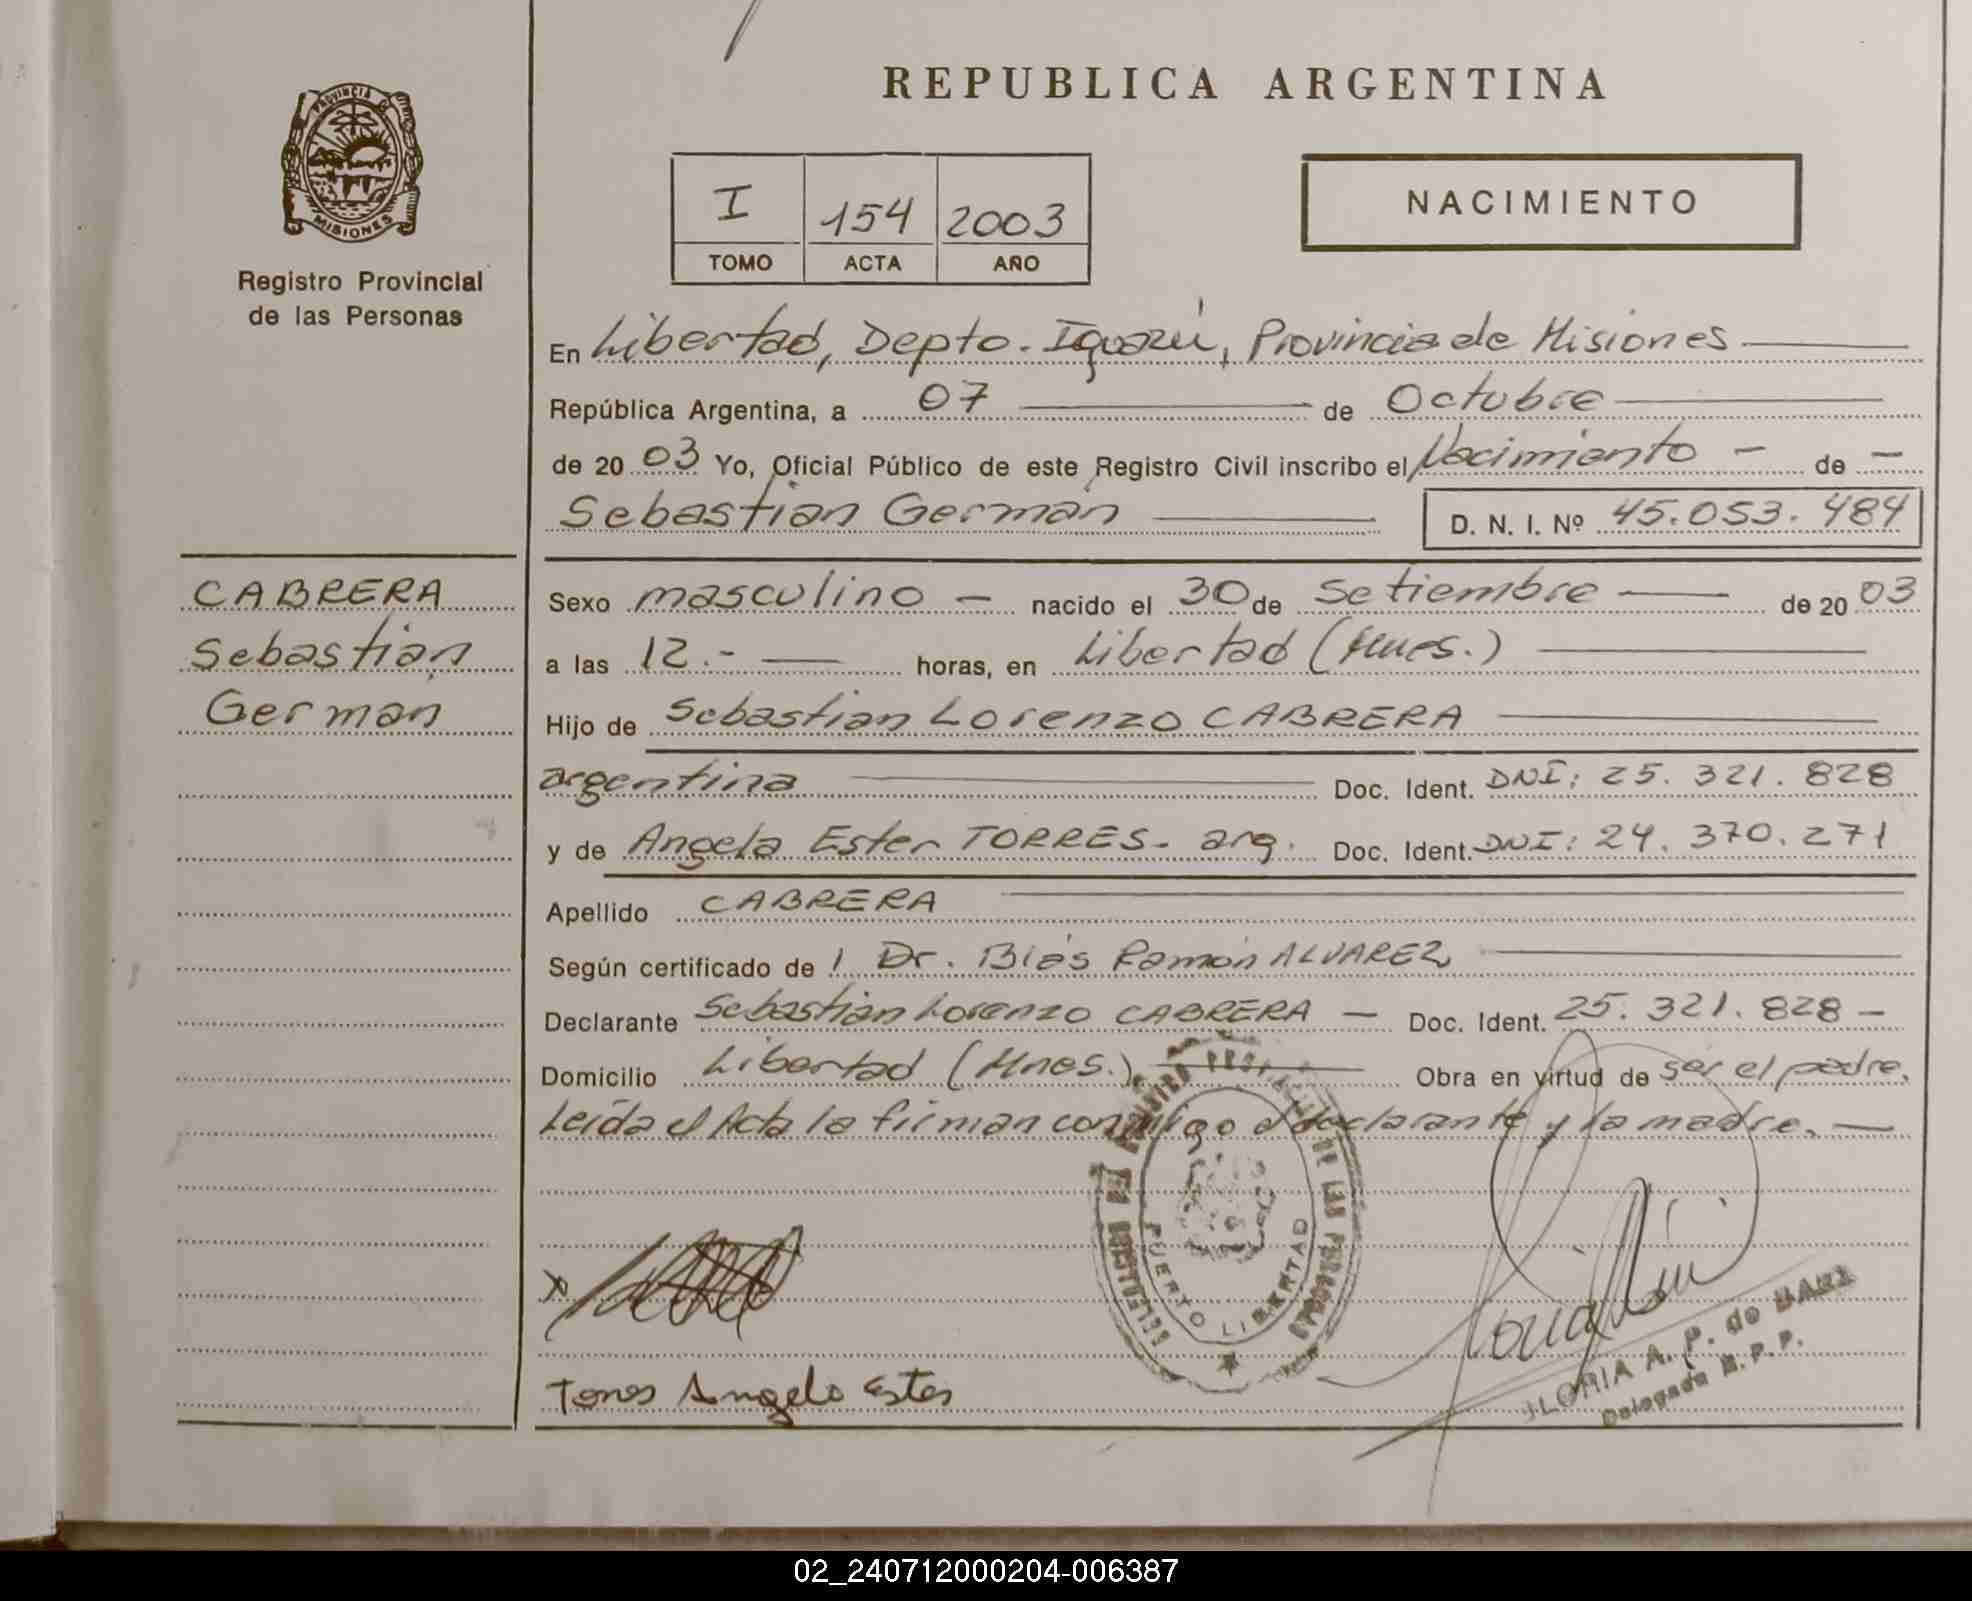 PROVINCIA DE
MISIONES
Registro Provincial
de las Personas
REPUBLICA ARGENTINA
I 154 2003
TOMO ACTA AÑO
NACIMIENTO
En Libertad, Depto. Iguazú, Provincia de Misiones
República Argentina, a 07 de Octubre
de 2003 Yo, Oficial Público de este Registro Civil inscribo el Nacimiento - de -
Sebastián Germán D. N. I. Nº 45.053.484
CABRERA
Sebastián
Germán
Sexo masculino - nacido el 30 de Setiembre de 2003
a las 12.- horas, en Libertad (Mnes.)
Hijo de Sebastian Lorenzo CABRERA
argentina Doc. Ident. DNI: 25.321.828
y de Angela Ester TORRES- arg. Doc. Ident. DNI: 24.370.271
Apellido CABRERA
Según certificado de / Dr. Blás Ramón ALVAREZ
Declarante Sebastian Lorenzo CABRERA - Doc. Ident. 25.321.828-
Domicilio Libertad (Mnes.) Obra en virtud de ser el padre.
Leída el Acta la firman conmigo el declarante y la madre.-
DE LAS PERSONAS
PUERTO LIBERTAD
Torres Angela Ester
GLORIA A. P. de
Delegada R. P. P.
02_240712000204-006387